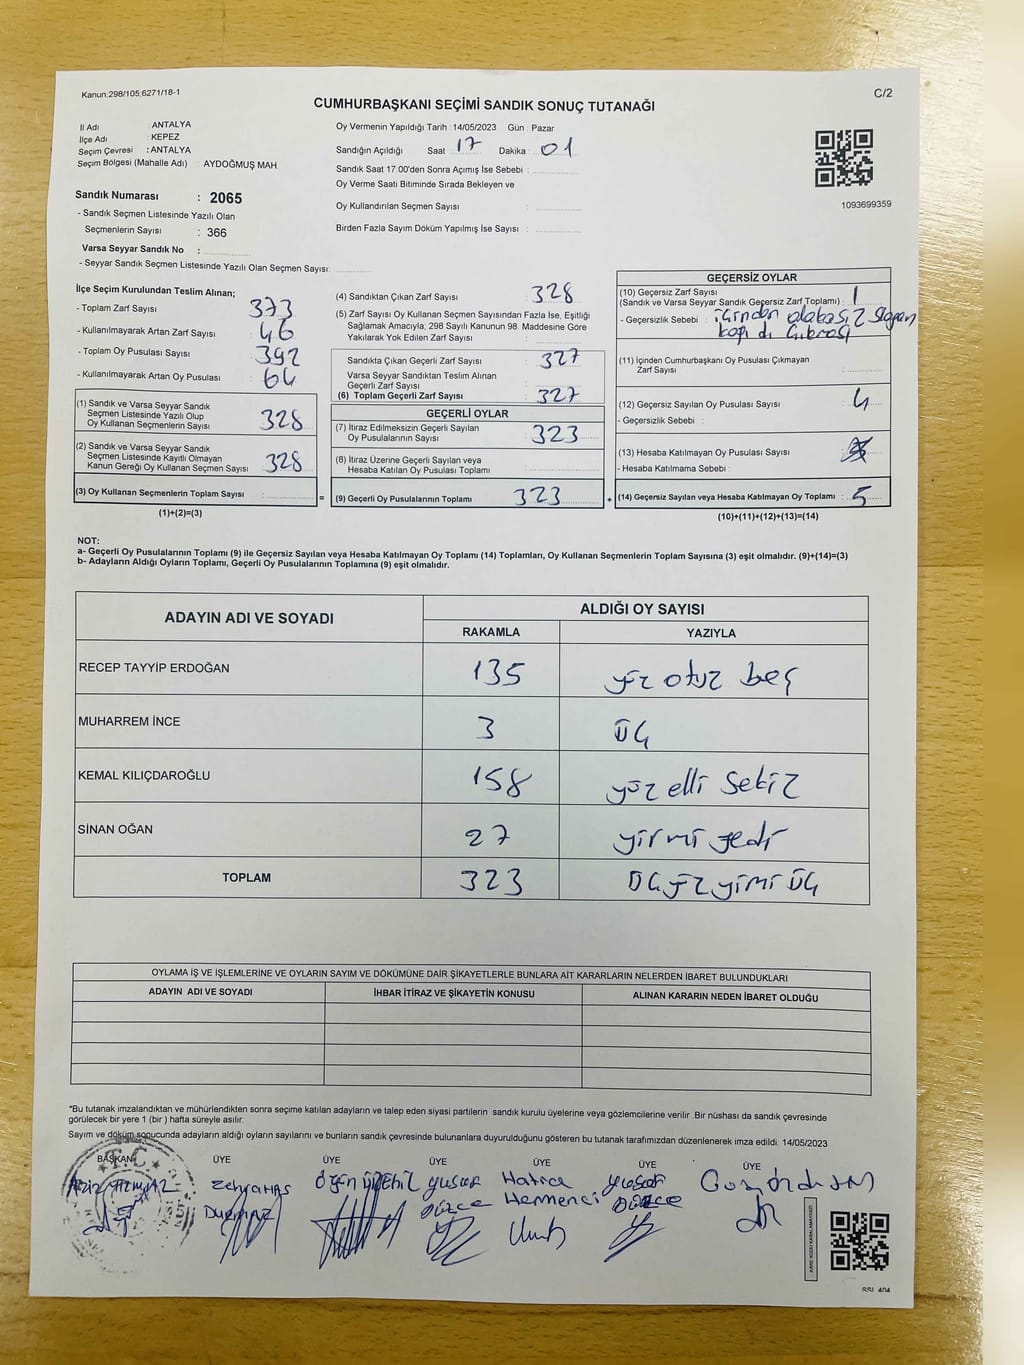 Kanun:298/105,6271/18-1
C/2
CUMHURBAŞKANI SEÇİMİ SANDIK SONUÇ TUTANAĞI
İl Adı : ANTALYA
İlçe Adı : KEPEZ
Seçim Çevresi : ANTALYA
Seçim Bölgesi (Mahalle Adı) : AYDOĞMUŞ MAH.
Sandık Numarası : 2065
- Sandık Seçmen Listesinde Yazılı Olan
Seçmenlerin Sayısı : 366
Varsa Seyyar Sandık No :
- Seyyar Sandık Seçmen Listesinde Yazılı Olan Seçmen Sayısı:
Oy Vermenin Yapıldığı Tarih : 14/05/2023 Gün : Pazar
Sandığın Açıldığı Saat : 17 Dakika : 01
Sandık Saat 17:00'den Sonra Açımış İse Sebebi :
Oy Verme Saati Bitiminde Sırada Bekleyen ve
Oy Kullandırılan Seçmen Sayısı :
Birden Fazla Sayım Döküm Yapılmış İse Sayısı :
1093699359
İlçe Seçim Kurulundan Teslim Alınan;
- Toplam Zarf Sayısı : 373
- Kullanılmayarak Artan Zarf Sayısı : 46
- Toplam Oy Pusulası Sayısı : 392
- Kullanılmayarak Artan Oy Pusulası : 64
(1) Sandık ve Varsa Seyyar Sandık
Seçmen Listesinde Yazılı Olup
Oy Kullanan Seçmenlerin Sayısı : 328
(2) Sandık ve Varsa Seyyar Sandık
Seçmen Listesinde Kayıtlı Olmayan
Kanun Gereği Oy Kullanan Seçmen Sayısı : 328
(3) Oy Kullanan Seçmenlerin Toplam Sayısı : =
(1)+(2)=(3)
(4) Sandıktan Çıkan Zarf Sayısı : 328
(5) Zarf Sayısı Oy Kullanan Seçmen Sayısından Fazla İse, Eşitliği
Sağlamak Amacıyla; 298 Sayılı Kanunun 98. Maddesine Göre
Yakılarak Yok Edilen Zarf Sayısı :
Sandıkta Çıkan Geçerli Zarf Sayısı : 327
Varsa Seyyar Sandıktan Teslim Alınan
Geçerli Zarf Sayısı :
(6) Toplam Geçerli Zarf Sayısı : 327
GEÇERLİ OYLAR
(7) İtiraz Edilmeksizin Geçerli Sayılan
Oy Pusulalarının Sayısı : 323
(8) İtiraz Üzerine Geçerli Sayılan veya
Hesaba Katılan Oy Pusulası Toplamı :
(9) Geçerli Oy Pusulalarının Toplamı : 323 +
GEÇERSİZ OYLAR
(10) Geçersiz Zarf Sayısı
(Sandık ve Varsa Seyyar Sandık Geçersiz Zarf Toplamı) : 1
- Geçersizlik Sebebi :
(11) İçinden Cumhurbaşkanı Oy Pusulası Çıkmayan
Zarf Sayısı :
(12) Geçersiz Sayılan Oy Pusulası Sayısı : 4
- Geçersizlik Sebebi :
(13) Hesaba Katılmayan Oy Pusulası Sayısı :
- Hesaba Katılmama Sebebi :
(14) Geçersiz Sayılan veya Hesaba Katılmayan Oy Toplamı : 5
(10)+(11)+(12)+(13)=(14)
NOT:
a- Geçerli Oy Pusulalarının Toplamı (9) ile Geçersiz Sayılan veya Hesaba Katılmayan Oy Toplamı (14) Toplamları, Oy Kullanan Seçmenlerin Toplam Sayısına (3) eşit olmalıdır. (9)+(14)=(3)
b- Adayların Aldığı Oyların Toplamı, Geçerli Oy Pusulalarının Toplamına (9) eşit olmalıdır.
ADAYIN ADI VE SOYADI
ALDIĞI OY SAYISI
RAKAMLA YAZIYLA
RECEP TAYYİP ERDOĞAN 135 yüz otuz beş
MUHARREM İNCE 3 üç
KEMAL KILIÇDAROĞLU 158 yüz elli sekiz
SİNAN OĞAN 27 yirmi yedi
TOPLAM 323 üçyüzyimi üç
OYLAMA İŞ VE İŞLEMLERİNE VE OYLARIN SAYIM VE DÖKÜMÜNE DAİR ŞİKAYETLERLE BUNLARA AİT KARARLARIN NELERDEN İBARET BULUNDUKLARI
ADAYIN ADI VE SOYADI İHBAR İTİRAZ VE ŞİKAYETİN KONUSU ALINAN KARARIN NEDEN İBARET OLDUĞU
*Bu tutanak imzalandıktan ve mühürlendikten sonra seçime katılan adayların ve talep eden siyasi partilerin sandık kurulu üyelerine veya gözlemcilerine verilir .Bir nüshası da sandık çevresinde
görülecek bir yere 1 (bir ) hafta süreyle asılır.
Sayım ve döküm sonucunda adayların aldığı oyların sayılarını ve bunların sandık çevresinde bulunanlara duyurulduğunu gösteren bu tutanak tarafımızdan düzenlenerek imza edildi. 14/05/2023
BAŞKAN ÜYE ÜYE ÜYE ÜYE ÜYE ÜYE
T.C.
Yusuf Hatice Yusuf
Düzce Hermenci Düzce